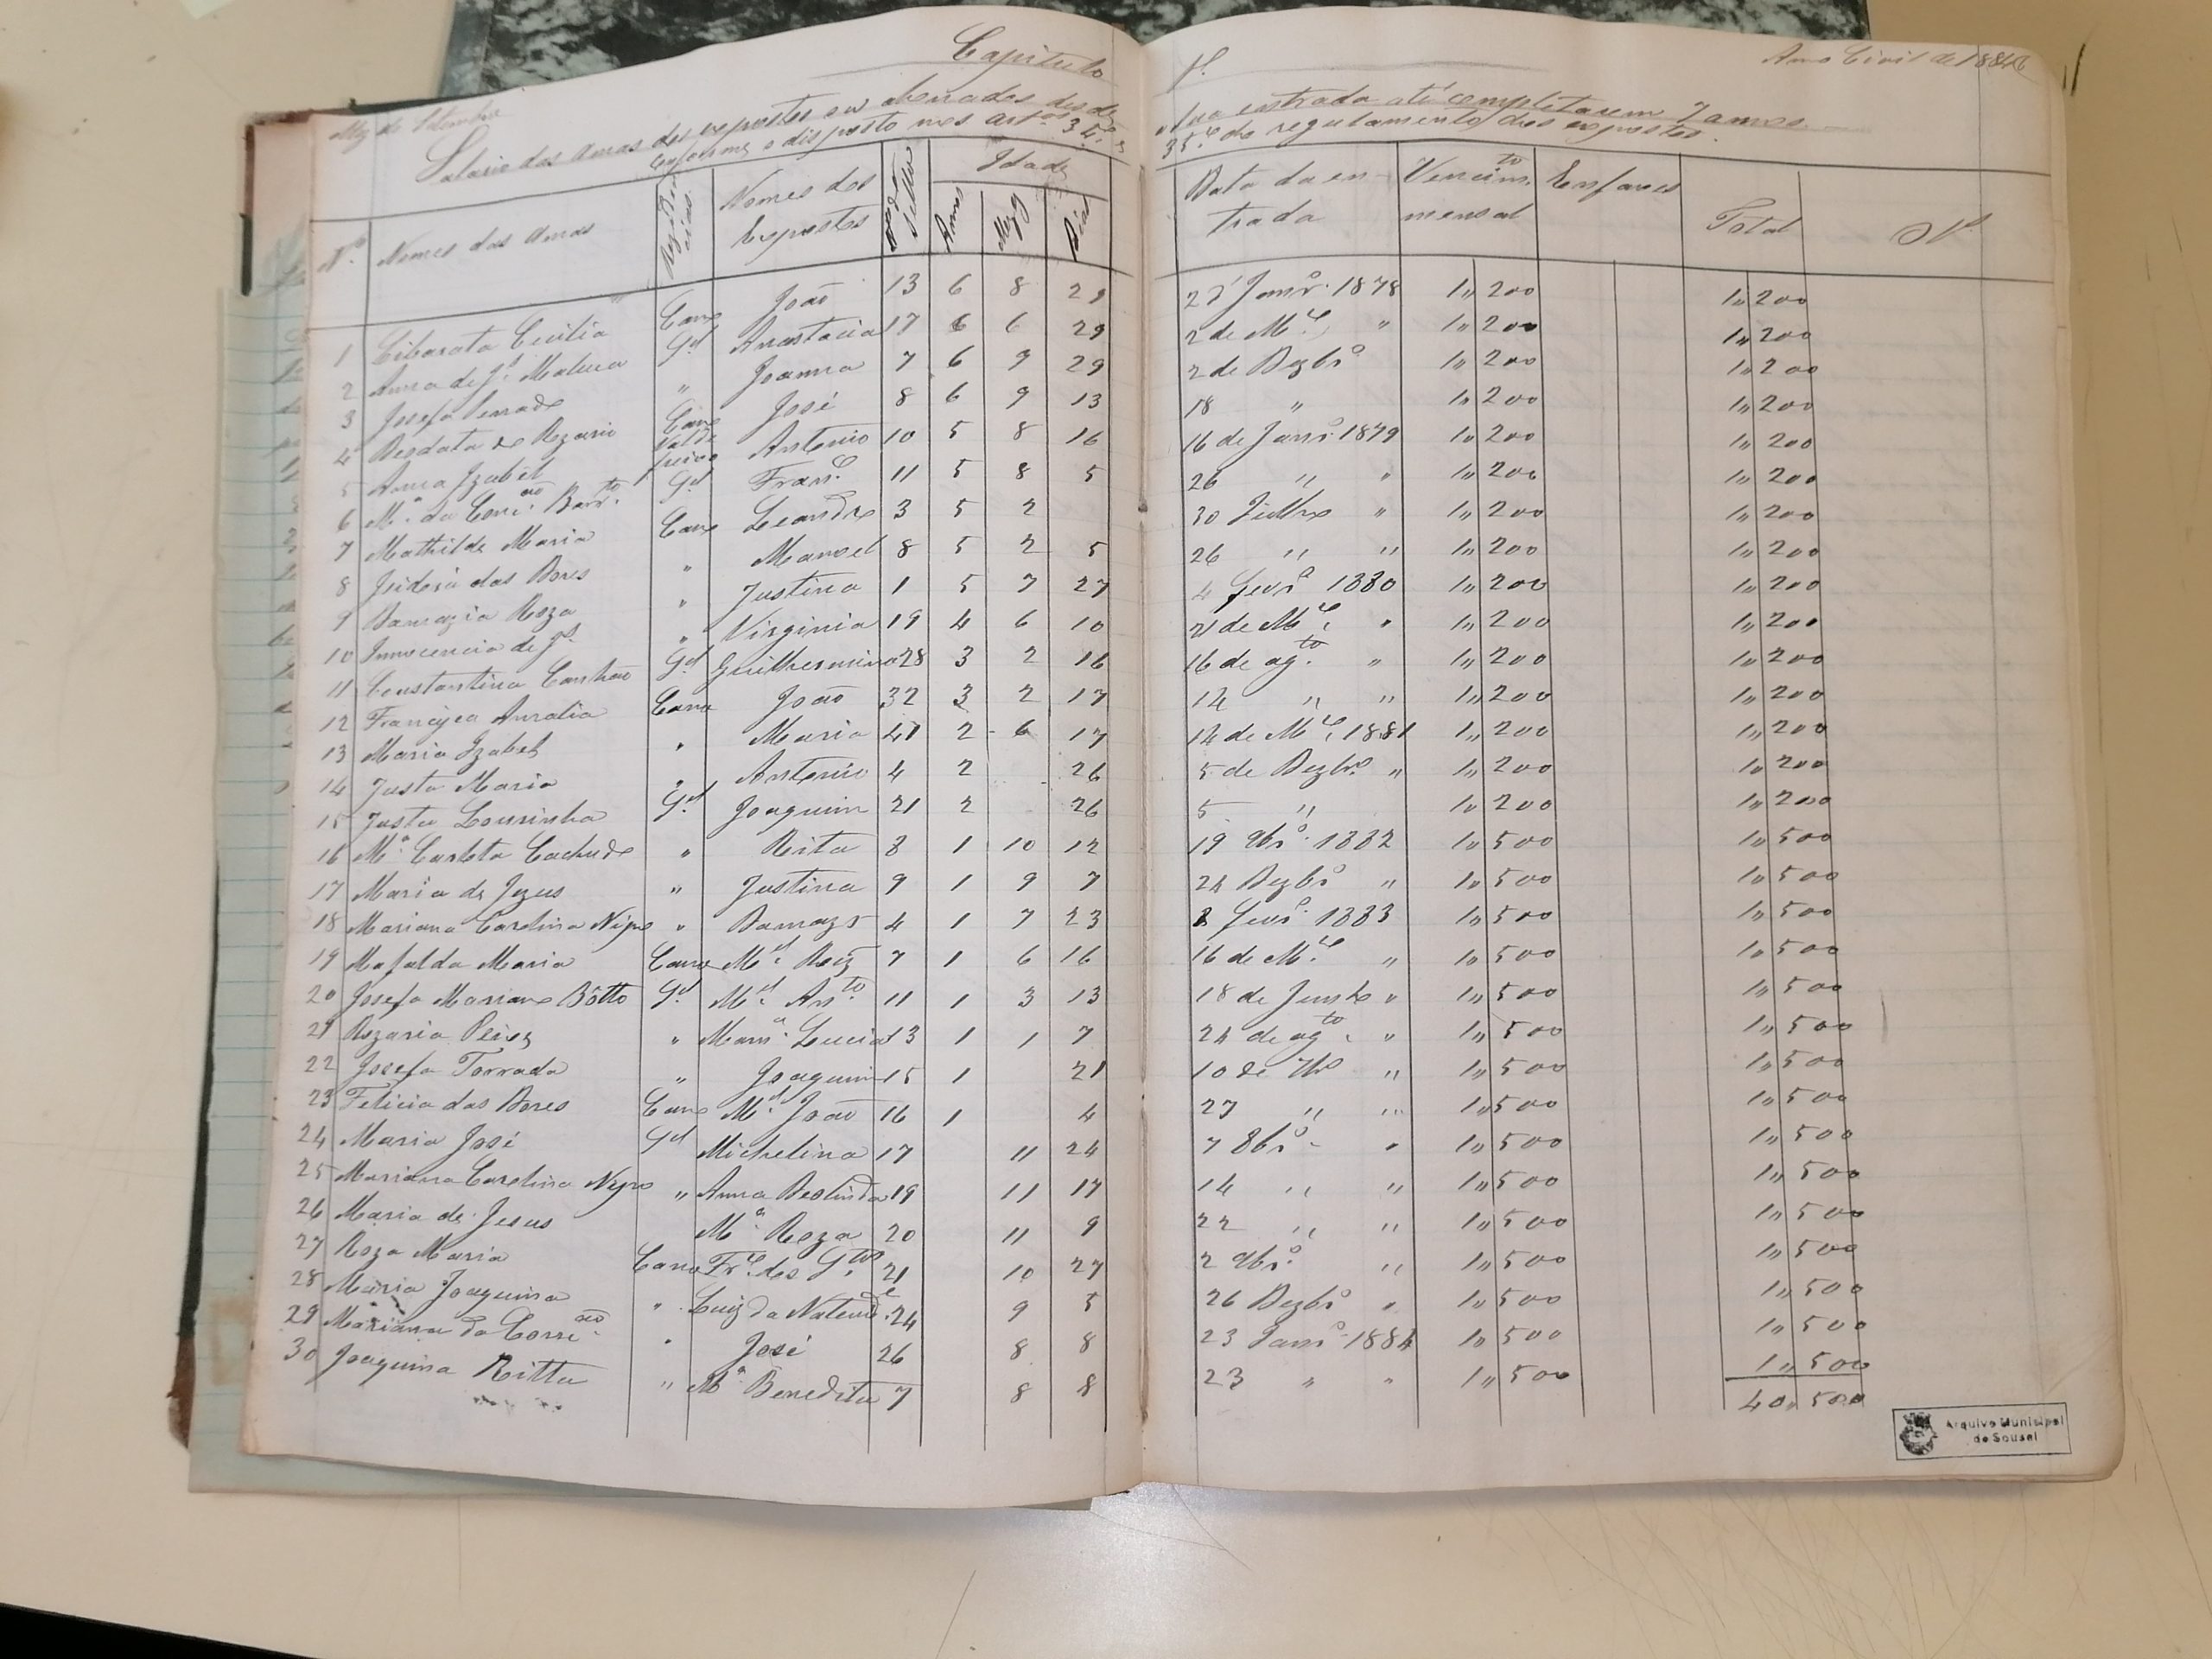 Capitulo 1º
Mez de Setembro
Anno Civil de 1884
Salario das amas dos expostos ou abonados desde a sua entrada até completarem 7 annos
conforme o disposto nos artos 34º e 35º do regulamento dos expostos.
Nº Nomes das Amas Residencias Nomes dos Expostos Nº do Sello Idade Annos Mezes Dias Data da entrada Vencimto mensal Enxovaes Total
1 Liberata Cecilia Cano João 13 6 8 29 Janrº 1878 1,,200 1,,200
2 Anna de Js. Gd Anastacia 17 6 6 29 2 de Mço ,, 1,,200 1,,200
3 Josefa ,, Joanna 7 6 9 29 2 de Dezbrº 1,,200 1,,200
4 Deodata do Rozario Cano José 8 6 9 13 18 ,, 1,,200 1,,200
5 Anna Izabel Antonio 10 5 8 16 16 de Janrº 1879 1,,200 1,,200
6 Mª da Conção Barrto Gd Franco 11 5 8 5 26 ,, ,, 1,,200 1,,200
7 Mathilde Maria Cano Leandro 3 5 2 30 Julho ,, 1,,200 1,,200
8 Izidora das Dores ,, Manoel 8 5 2 5 26 ,, ,, 1,,200 1,,200
9 Damazia Roza ,, Justina 1 5 7 27 4 Fevrº 1880 1,,200 1,,200
10 Innocencia de Js. ,, Virginia 19 4 6 10 21 de Mço ,, 1,,200 1,,200
11 Constantina Gd Guilhermina 28 3 2 16 16 de agto ,, 1,,200 1,,200
12 Francisca Amalia Cano João 32 3 2 17 14 ,, ,, 1,,200 1,,200
13 Maria Izabel ,, Maria 41 2 6 17 14 de Mço 1881 1,,200 1,,200
14 Justa Maria ,, Antonio 4 2 26 5 de Dezbrº ,, 1,,200 1,,200
15 Justa Lourinha Gd Joaquim 21 2 26 5 ,, 1,,200 1,,200
16 Mª Carlota Cachudo ,, Rita 8 1 10 12 19 9brº 1882 1,,500 1,,500
17 Maria de Jezus ,, Justina 9 1 9 7 24 Dezbrº ,, 1,,500 1,,500
18 Mariana Carolina ,, Damazo 4 1 7 23 8 Fevrº 1883 1,,500 1,,500
19 Mafalda Maria Cano Mel Roiz 7 1 6 16 16 de Mço ,, 1,,500 1,,500
20 Josefa Mariana Bôtto Gd Mel Anto 11 1 3 13 18 de Junho ,, 1,,500 1,,500
21 Rozaria Peires ,, Marª Lucia 13 1 1 7 24 de agto ,, 1,,500 1,,500
22 Josefa Torrada ,, Joaquim 15 1 21 10 de 7brº ,, 1,,500 1,,500
23 Felicia das Dores Cano Mel João 16 1 4 27 ,, ,, 1,,500 1,,500
24 Maria José Gd Michelina 17 11 24 7 8brº ,, 1,,500 1,,500
25 Mariana Carolina ,, Anna Deolinda 19 11 17 14 ,, ,, 1,,500 1,,500
26 Maria de Jesus Mª Roza 20 11 9 22 ,, ,, 1,,500 1,,500
27 Roza Maria Cano Frco dos Stos 21 10 27 2 9brº ,, 1,,500 1,,500
28 Maria Joaquina ,, Luiz da Natevide 24 9 5 26 Dezbrº ,, 1,,500 1,,500
29 Mariana da Conceição ,, José 26 8 8 23 Janrº 1884 1,,500 1,,500
30 Joaquina Ritta ,, Mª Benedita 7 8 8 23 ,, ,, 1,,500 1,,500
40,,500
Arquivo Municipal
de Sousel